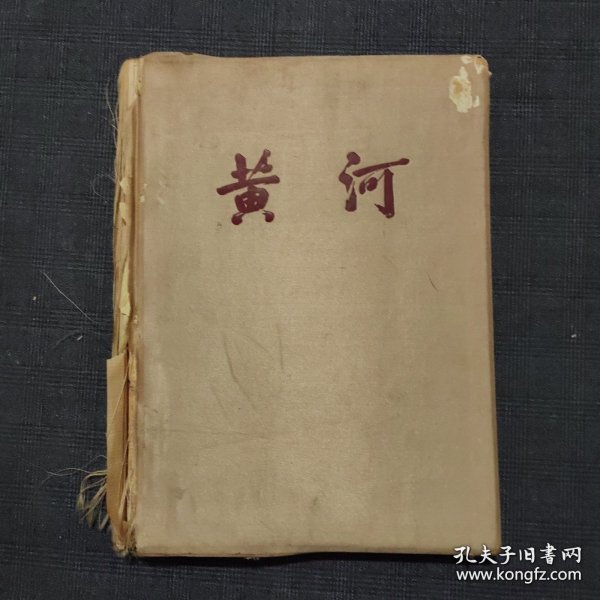 黄河
孔夫子旧書网
www.kongfz.com